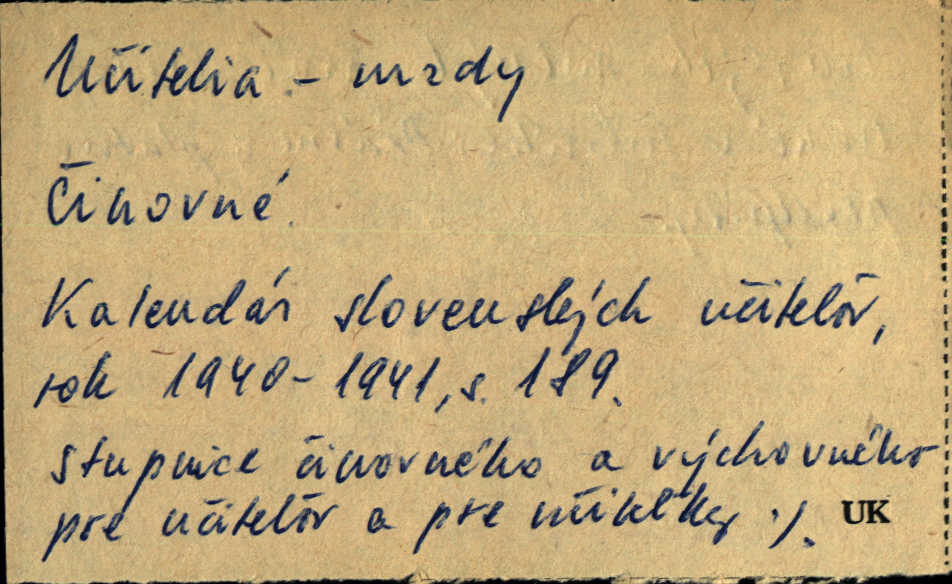 Učitelia - mzdy
Činovné.
Kalendár slovenských učiteľov,
rok 1940-1941, s. 189.
Stupnice činovného a výchovného
pre učiteľov a pre učiteľky ./. UK